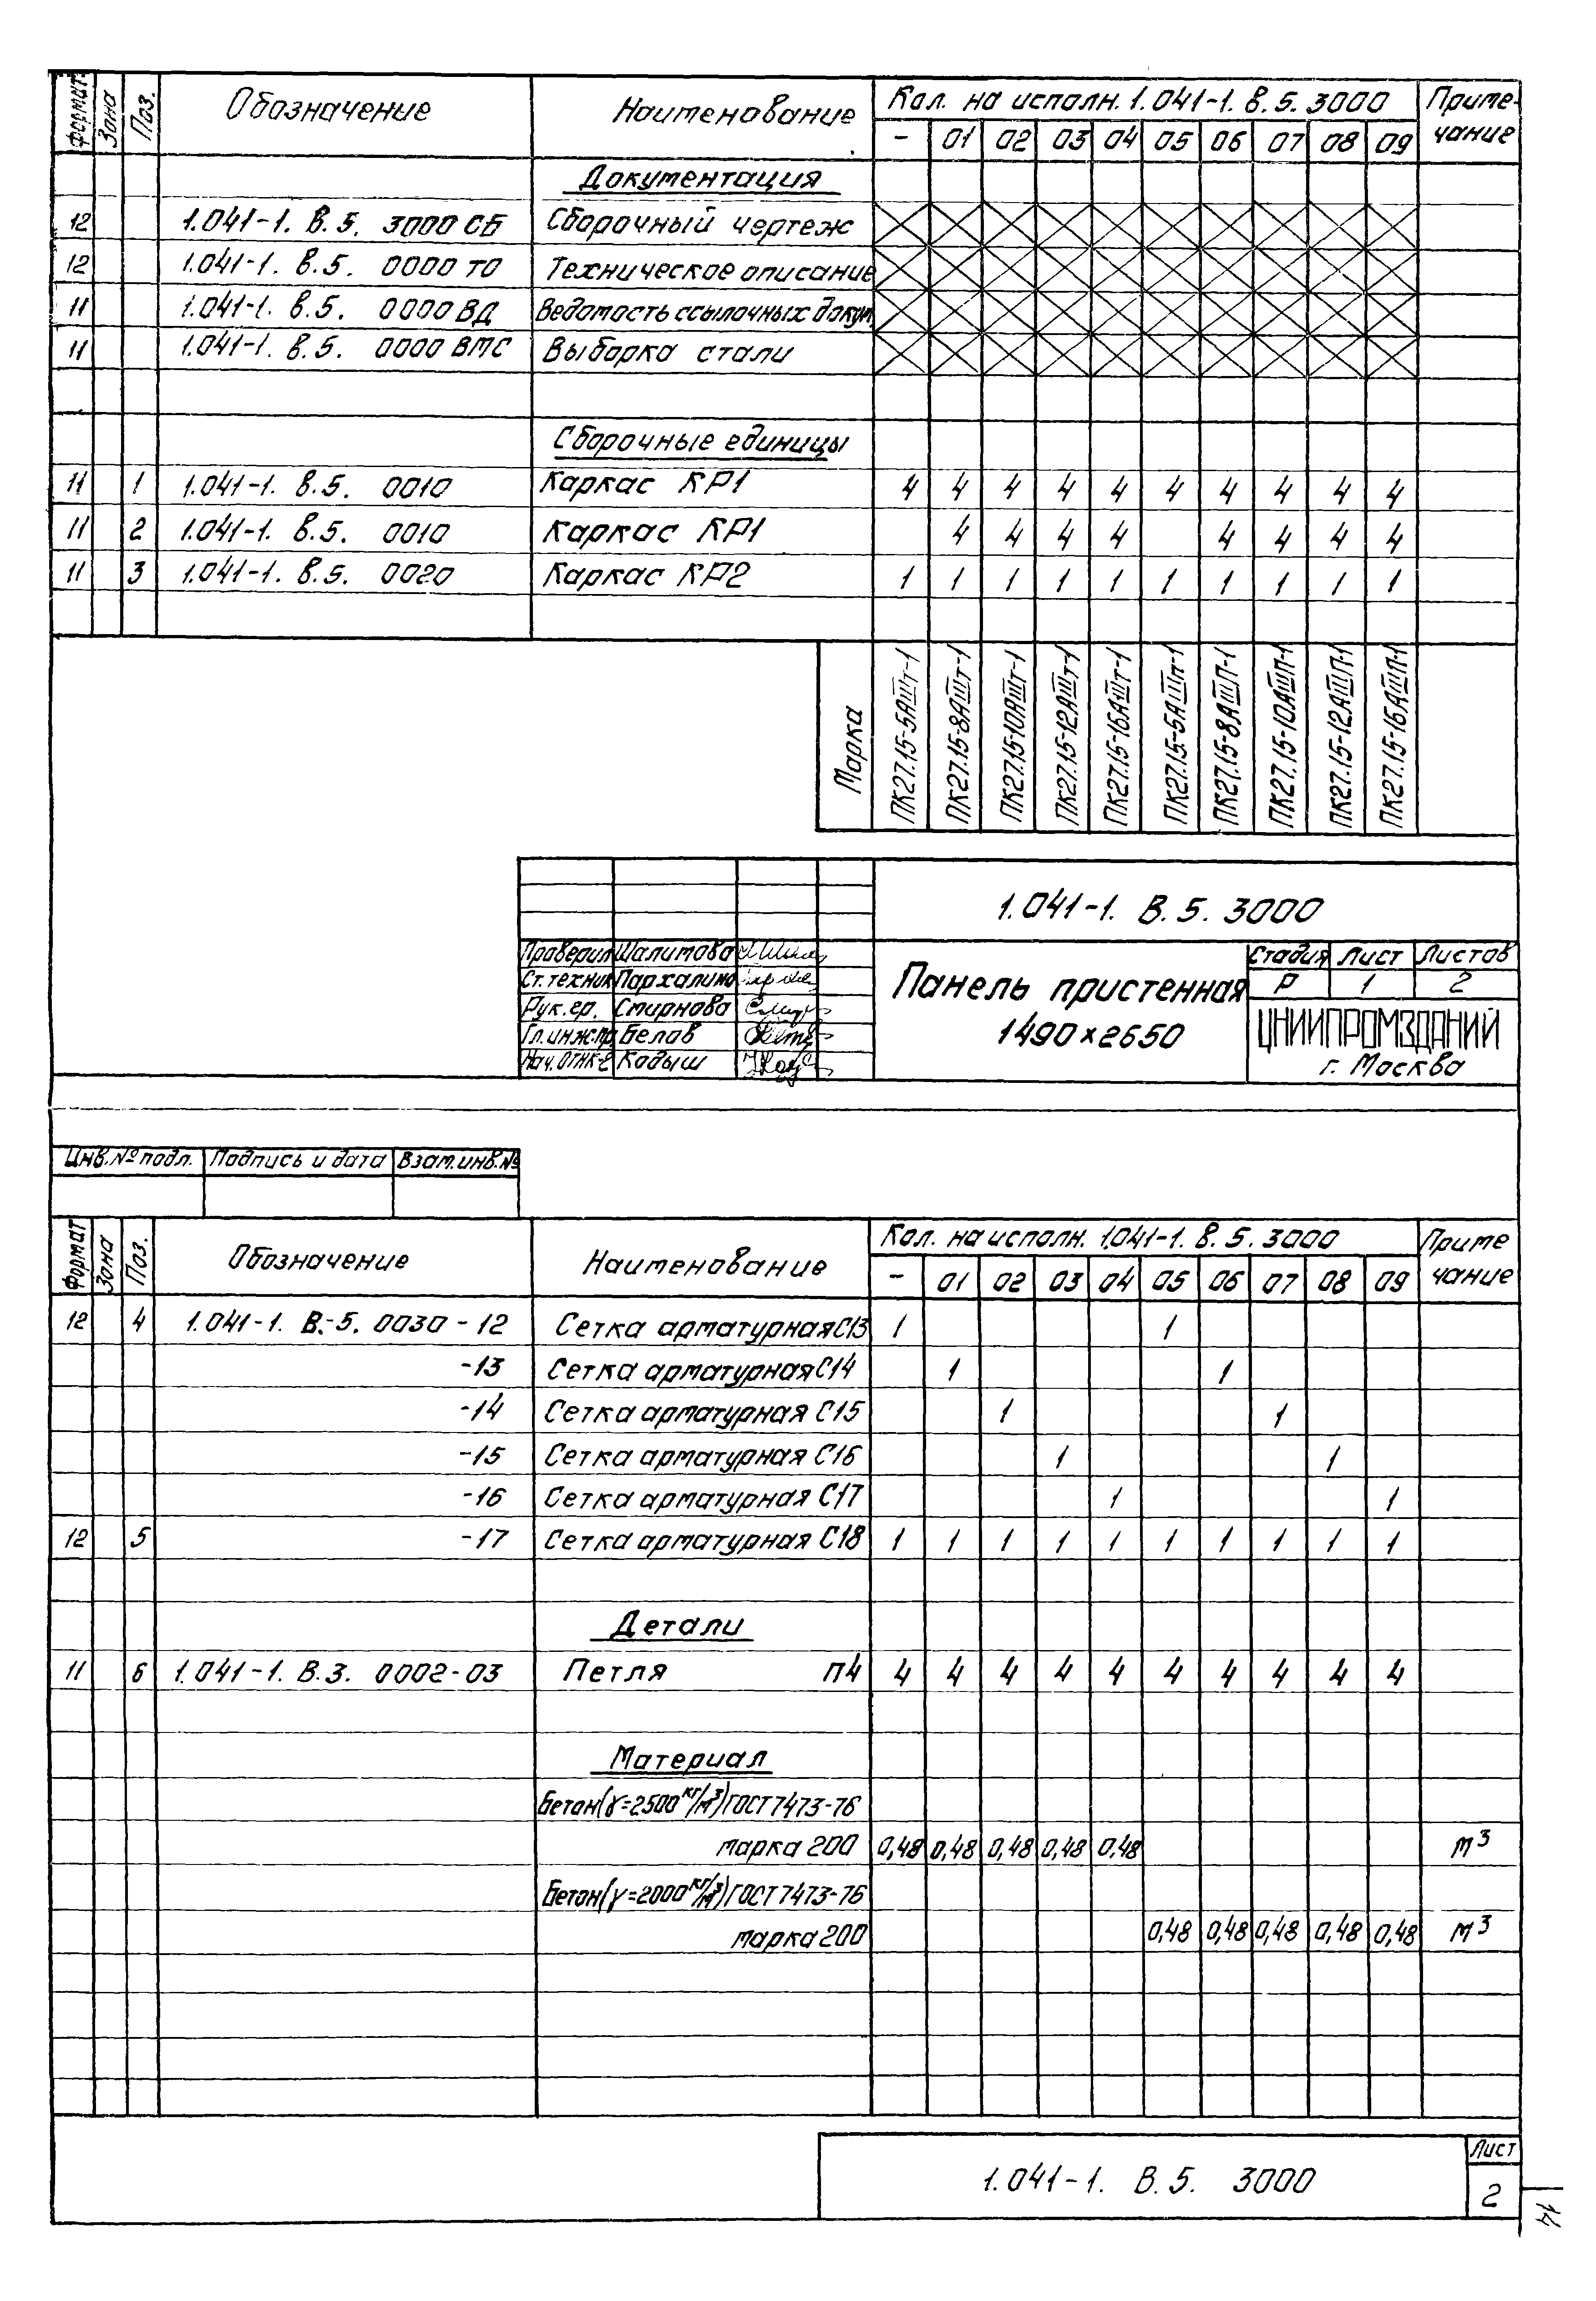 Формат Зона Поз. Обозначение Наименование Кол. на исполн. 1.041-1. В.5. 3000 Приме-чание
- 01 02 03 04 05 06 07 08 09
Документация
12 1.041-1. В.5. 3000 СБ Сборочный чертеж
12 1.041-1. В.5. 0000 ТО Техническое описание
11 1.041-1. В.5. 0000 ВД Ведомость ссылочных докум.
11 1.041-1. В.5. 0000 ВМС Выборка стали
Сборочные единицы
11 1 1.041-1. В.5. 0010 Каркас КР1 4 4 4 4 4 4 4 4 4 4
11 2 1.041-1. В.5. 0010 Каркас КР1 4 4 4 4 4 4 4 4
11 3 1.041-1. В.5. 0020 Каркас КР2 1 1 1 1 1 1 1 1 1 1
Марка
ПК27.15-5АШт-1
ПК27.15-8АШт-1
ПК27.15-10АШт-1
ПК27.15-12АШт-1
ПК27.15-16АШт-1
ПК27.15-5АШп-1
ПК27.15-8АШП-1
ПК27.15-10АШП-1
ПК27.15-12АШП-1
ПК27.15-16АШП-1
1.041-1. В.5. 3000
Проверил Шалимова
Ст.техник Пархалина
Рук.гр. Смирнова
Гл.инж.пр. Белов
Нач.ОТНК-2 Кодыш
Панель пристенная
1490×2650
Стадия Лист Листов
Р 1 2
ЦНИИПРОМЗДАНИЙ
г. Москва
Инв.№ подл. Подпись и дата Взам.инв.№
Формат Зона Поз. Обозначение Наименование Кол. на исполн. 1.041-1. В.5. 3000 Приме чание
- 01 02 03 04 05 06 07 08 09
12 4 1.041-1. В.-5. 0030-12 Сетка арматурная С13 1 1
-13 Сетка арматурная С14 1 1
-14 Сетка арматурная С15 1 1
-15 Сетка арматурная С16 1 1
-16 Сетка арматурная С17 1 1
12 5 -17 Сетка арматурная С18 1 1 1 1 1 1 1 1 1 1
Детали
11 6 1.041-1. В.3. 0002-03 Петля П4 4 4 4 4 4 4 4 4 4 4
Материал
Бетон(γ=2500кг/м³)ГОСТ7473-76
марка 200 0,48 0,48 0,48 0,48 0,48 м³
Бетон(γ=2000кг/м³)ГОСТ7473-76
марка 200 0,48 0,48 0,48 0,48 0,48 м³
1.041-1. В.5. 3000
Лист
2
14